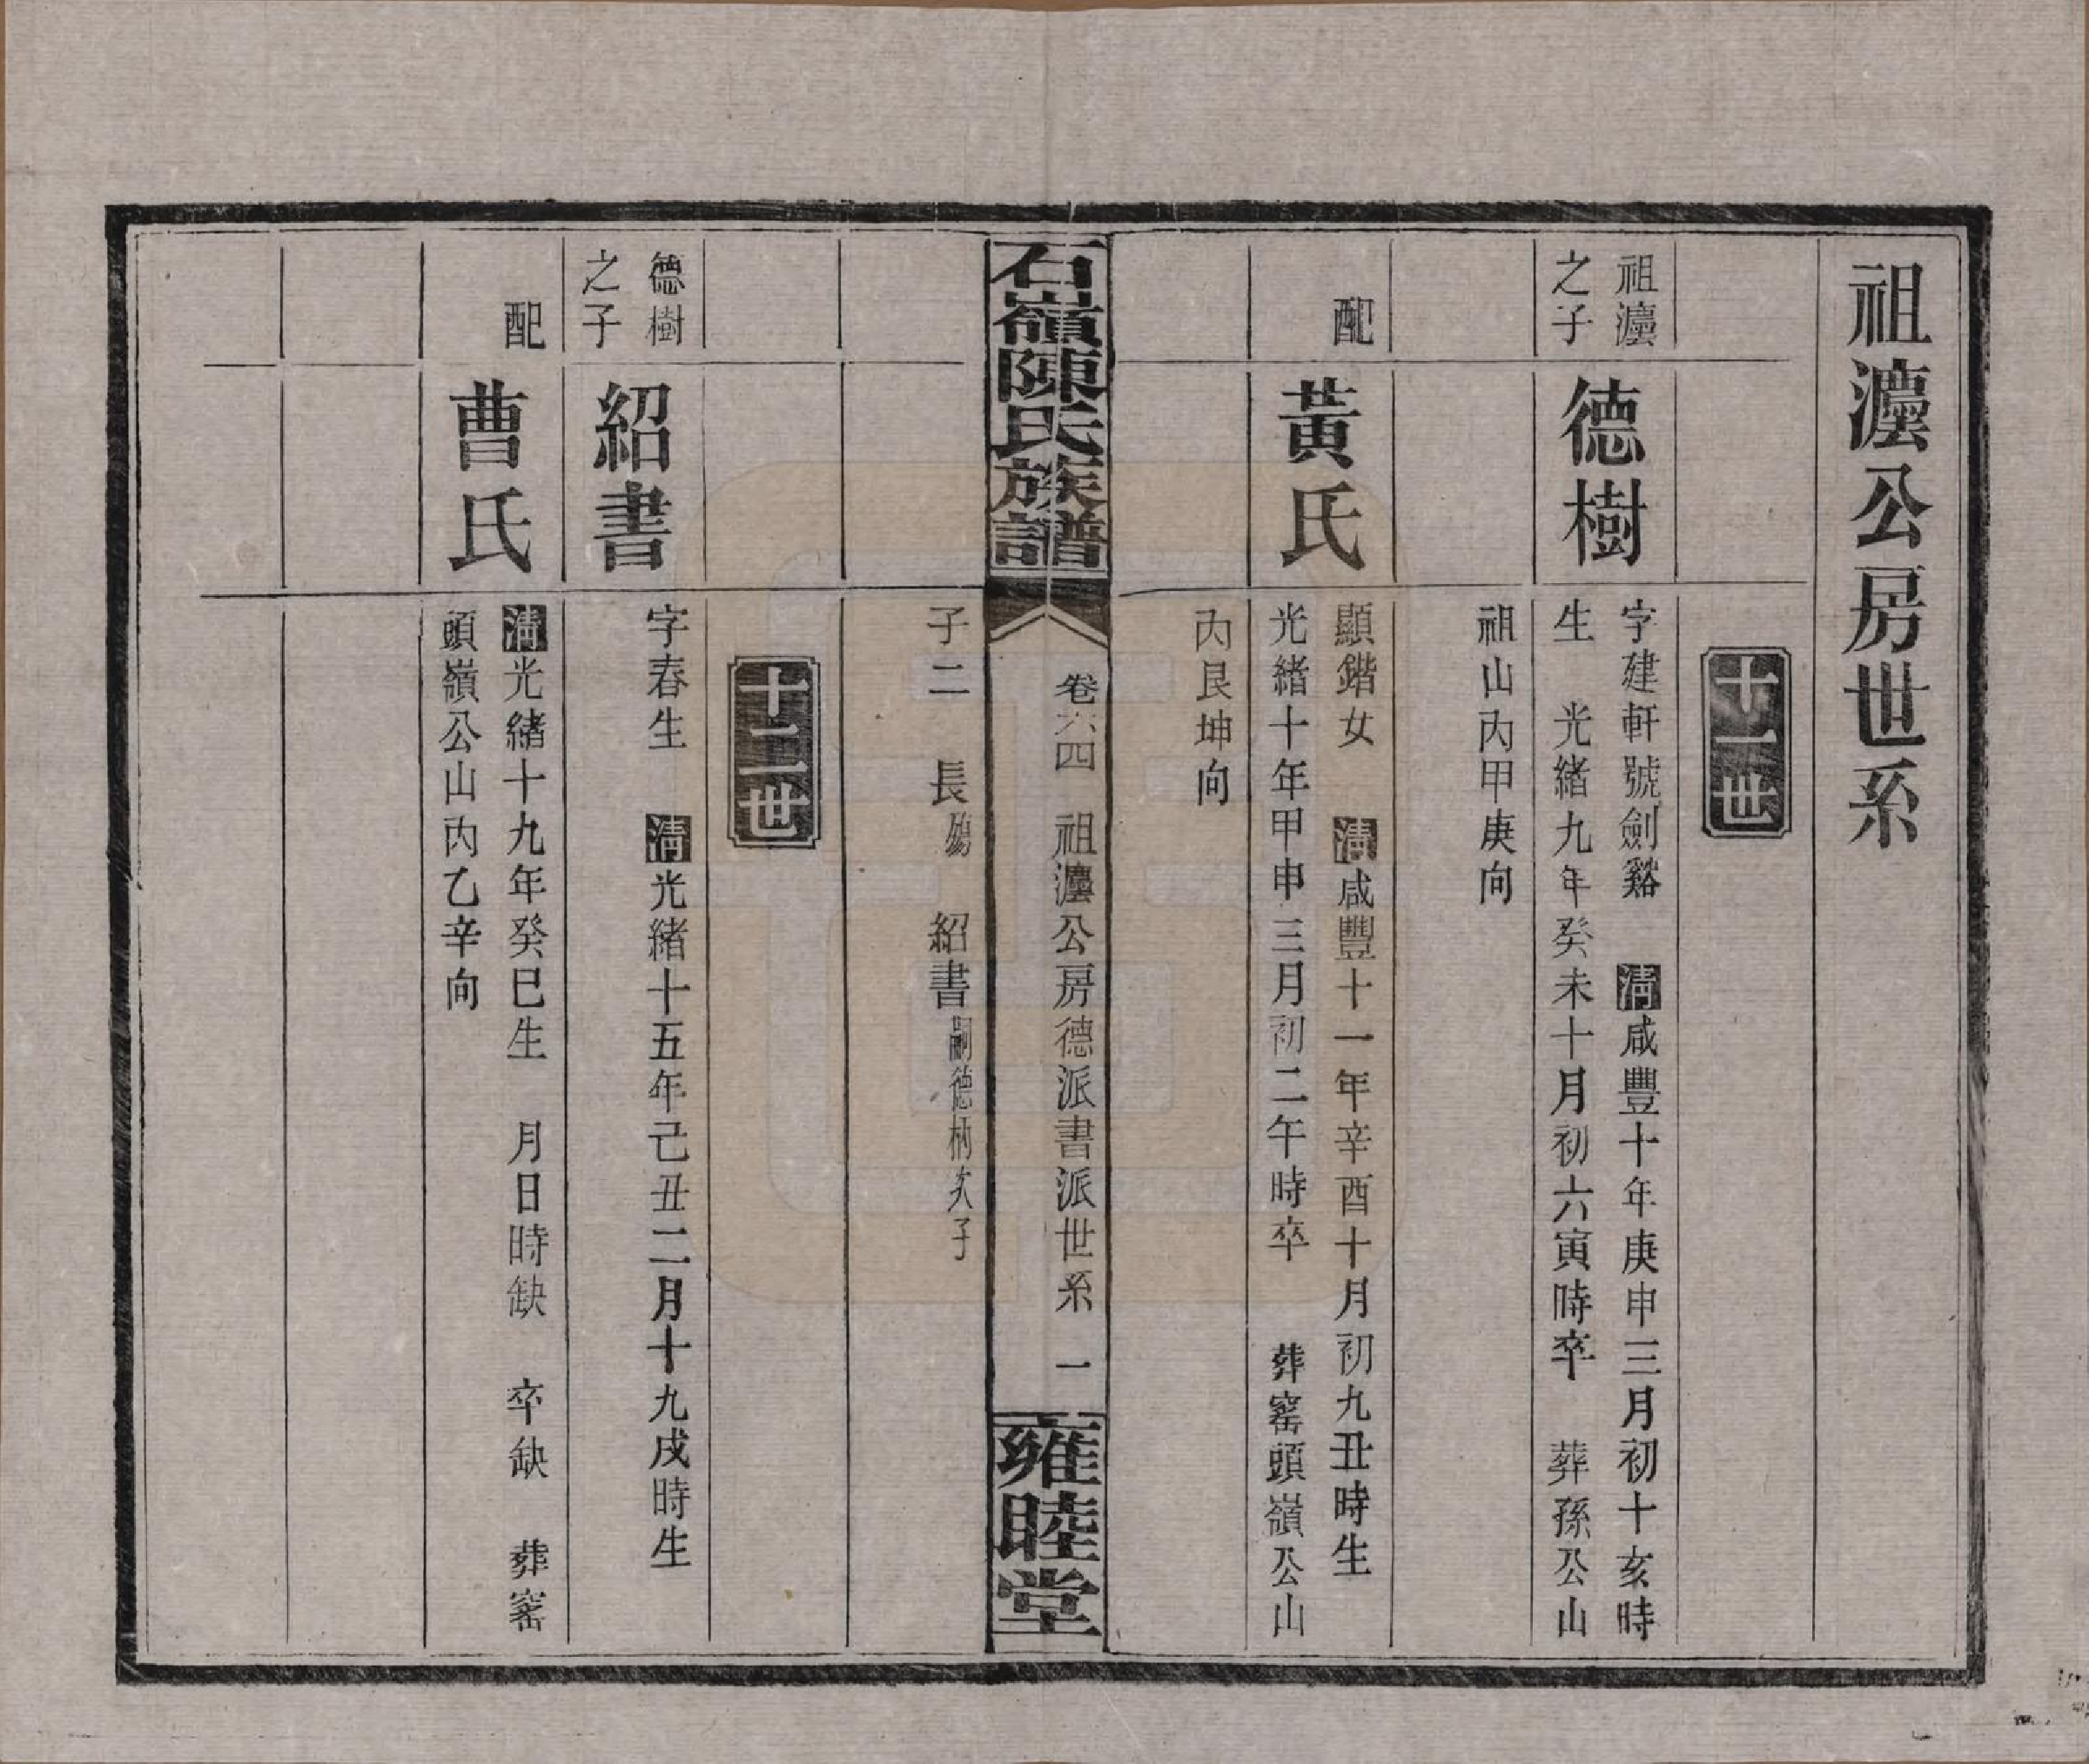 祖瀍公房世系
十一世
祖瀍
之子
德樹
字建軒號劍谿 清咸豐十年庚申三月初十亥時
生 光緒九年癸未十月初六寅時卒 葬孫公山
祖山内甲庚向
配
黃氏
顯鍇女 清咸豐十一年辛酉十月初九丑時生
光緒十年甲申三月初二午時卒 葬窰頭嶺公山
内艮坤向
石嶺陳氏族譜
卷六四 祖瀍公房德派書派世系 一
雍睦堂
子二 長殤 紹書嗣德柄次子
十二世
德樹
之子
紹書
字春生 清光緒十五年己丑二月十九戌時生
配
曹氏
清光緒十九年癸巳生 月日時缺 卒缺 葬窰
頭嶺公山内乙辛向